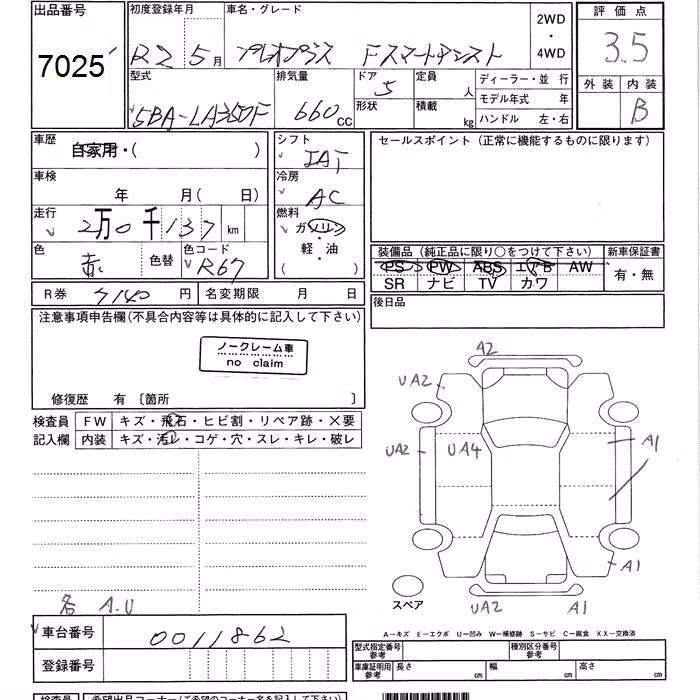 出品番号 初度登録年月 車名・グレード 2WD ・ 4WD 評価点
7025 R2 5月 プレオプラス Fスマートアシスト 3.5
型式 排気量 ドア 定員 人 ディーラー・並 行 外装 内装
5BA-LA350F 660cc 5 形状 積載 kg モデル年式 年 B
ハンドル 左・右
車歴 自家用・( ) シフト IAT セールスポイント (正常に機能するものに限ります)
車検 年 月( 日) 冷房 AC
走行 2万0千137km 燃料 ガソリン・軽・油 ( )
色 赤 色替 色コード R67
装備品 (純正品に限り○をつけて下さい) 新車保証書
PS PW ABS エアB AW 有・無
SR ナビ TV カワ
R券 7140 円 名変期限 月 日 後日品
注意事項申告欄(不具合内容等は具体的に記入して下さい)
ノークレーム車
no claim
修復歴 有 〔箇所 〕
検査員 FW キズ・飛石・ヒビ割・リペア跡・×要
記入欄 内装 キズ・汚レ・コゲ・穴・スレ・キレ・破レ
A2
UA2
UA2 UA4 A1
A1
スペア UA2 A1
各 A.U
A-キズ E-エクボ U-凹み W-補修跡 S-サビ C-腐食 XX-交換済
車台番号 0011862
登録番号
型式指定番号 参考 種別区分番号 参考
車庫証明用 参考 長さ cm 幅 cm 高さ cm
検査員 希望出品コーナー(ご希望のコーナー名を記入して下さい)